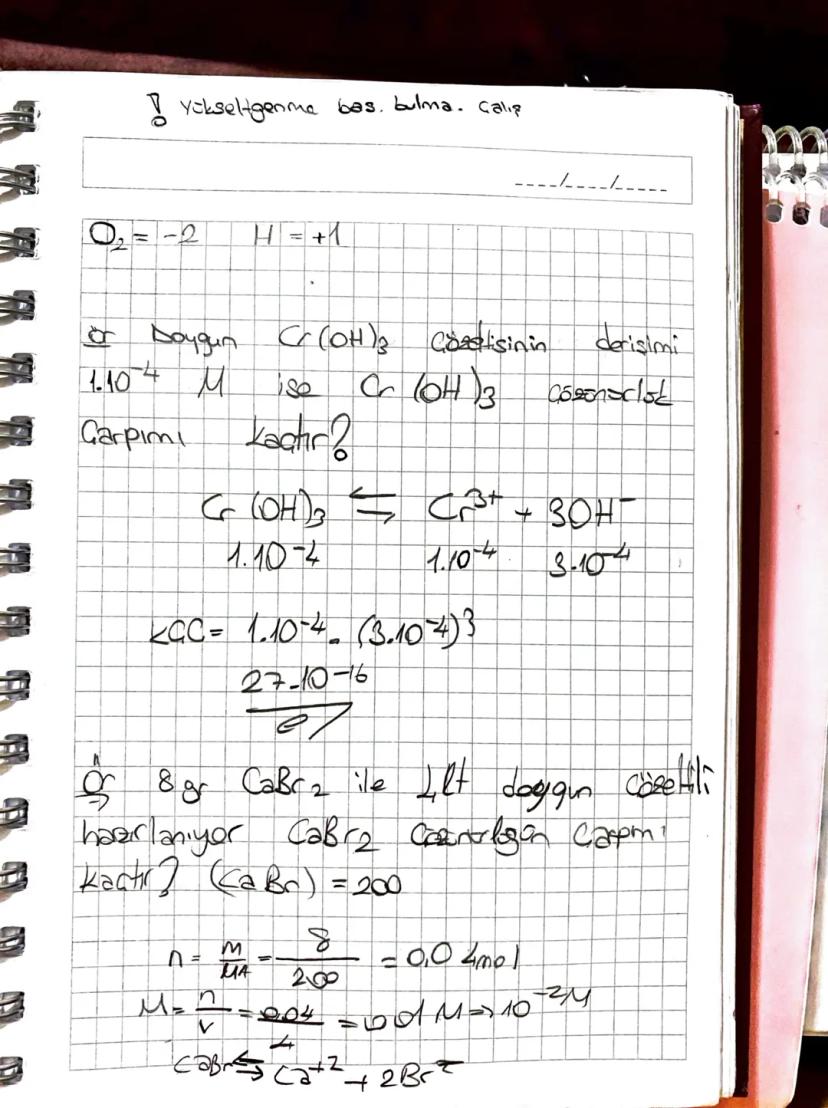 ! Yükseltgenme bas. bulma. Çalış
----/----/-----
O₂ = -2 H = +1
Ör Doygun Cr(OH)₃ çözeltisinin derişimi
1.10⁻⁴ M ise Cr (OH)₃ çözünürlük
Çarpımı kaçtır?
Cr (OH)₃ ⇌ Cr³⁺ + 3OH⁻
1.10⁻⁴ 1.10⁻⁴ 3.10⁻⁴
KÇÇ = 1.10⁻⁴ . (3.10⁻⁴)³
27.10⁻¹⁶
Ör 8 gr CaBr₂ ile 4 lt doygun çözelti
hazırlanıyor CaBr₂ Çarpımı
kaçtır? (CaBr) = 200
n = m/MA = 8/200 = 0,04 mol
M = n/v = 0.04/4 = 0,01 M => 10⁻² M
CaBr ⇌ Ca⁺² + 2Br⁻